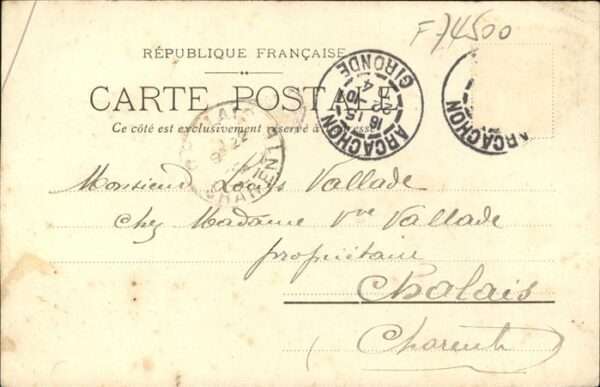 F74500
RÉPUBLIQUE FRANÇAISE
CARTE POSTALE
Ce côté est exclusivement réservé à l'adresse
ARCACHON
GIRONDE
16 15
22
4
01
ARCACHON
CHALAIS
22
CHARENTE
Monsieur Louis Vallade
chez Madame Vve Vallade
propriétaire
Chalais
Charente